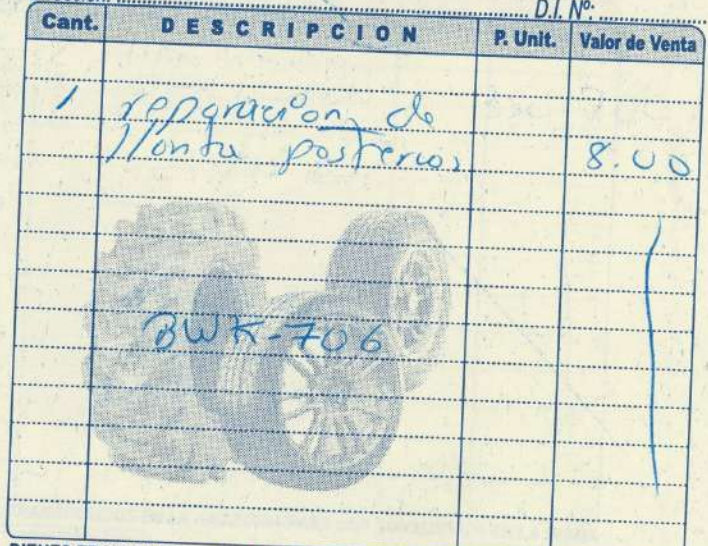 D.I. Nº:
Cant. DESCRIPCION P. Unit. Valor de Venta
1 reparacion de
llanta posterior 8.00
BWK-706